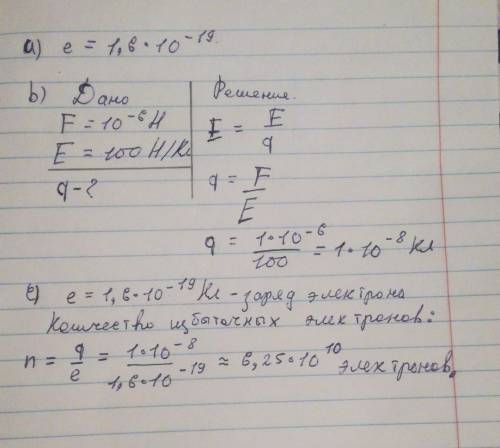 a) e = 1,6·10⁻¹⁹
b) Дано
F = 10⁻⁶ Н
E = 100 Н/Кл
q - ?
Решение.
E = F/q
q = F/E
q = 1·10⁻⁶/100 = 1·10⁻⁸ Кл
c) e = 1,6·10⁻¹⁹ Кл - заряд электрона
Количество избыточных электронов:
n = q/e = 1·10⁻⁸/1,6·10⁻¹⁹ ≈ 6,25·10¹⁰ электронов.